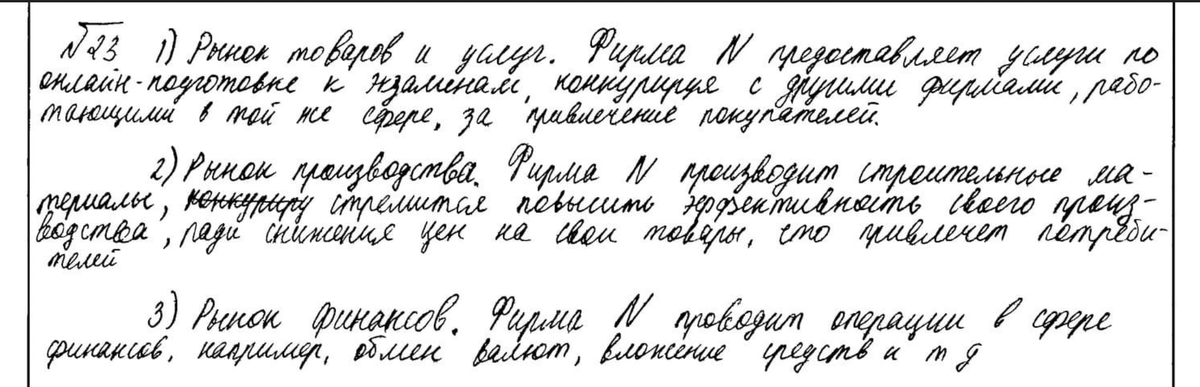 №23 1) Рынок товаров и услуг. Фирма N предоставляет услуги по
онлайн-подготовке к экзаменам, конкурируя с другими фирмами, рабо-
тающими в той же сфере, за привлечение покупателей.
2) Рынок производства. Фирма N производит строительные ма-
териалы, конкуриру стремится повысить эффективность своего произ-
водства, ради снижения цен на свои товары, что привлечет потреби-
телей
3) Рынок финансов. Фирма N проводит операции в сфере
финансов, например, обмен валют, вложение средств и т д